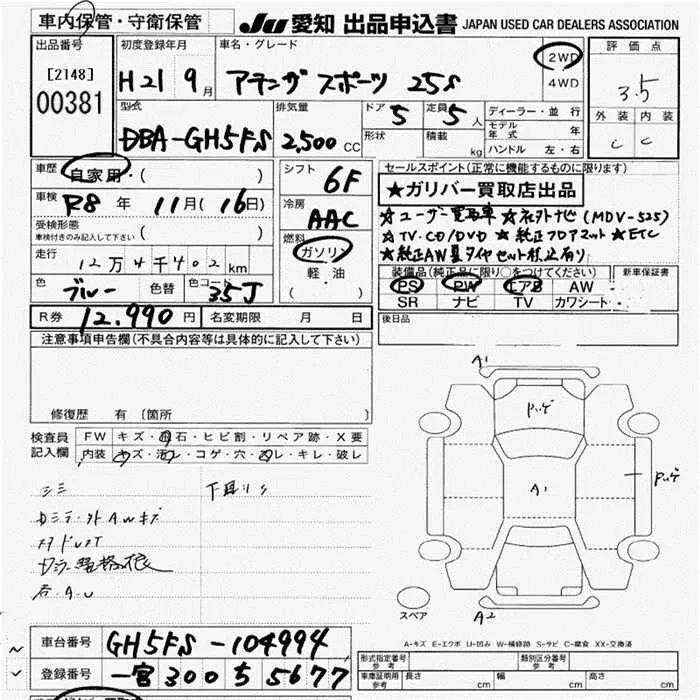 車内保管・守衛保管
JU 愛知 出品申込書 JAPAN USED CAR DEALERS ASSOCIATION
出品番号
[2148]
00381
初度登録年月
H21 9月
車名・グレード
アテンザ スポーツ 25S
2WD
4WD
評価点
3.5
外装 内装
C C
型式
DBA-GH5FS
排気量
2,500 CC
ドア 5
形状
定員 5 人
積載 kg
ディーラー・並行
モデル年式 年
ハンドル 左・右
車歴 自家用・( )
車検 R8 年 11月(16日)
受検形態
車検付きのみ記入して下さい ( )
走行 12万4千402 km
色 ブルー 色替 色コード 35J
シフト 6F
冷房 AAC
燃料
ガソリン
軽・油
( )
セールスポイント(正常に機能するものに限ります)
★ガリバー買取店出品
★ユーザー買取車 ★社外ナビ(MDV-525)
★TV.CD/DVD ★純正フロアマット ★ETC
★純正AW夏タイヤセット積込有り
装備品(純正品に限り○をつけてください)
PS PW エアB AW
SR ナビ TV カワシート
新車保証書
後日品
R券 12.990 円 名変期限 月 日
注意事項申告欄(不具合内容等は具体的に記入して下さい)
修復歴 有 〔箇所 〕
検査員記入欄
FW キズ・飛石・ヒビ割・リペア跡・X要
内装 キズ・汚レ・コゲ・穴・スレ・キレ・破レ
シミ
下廻りS
A1
A1
A2
スペア
A-キズ E-エクボ U-凹み W-補修跡 S-サビ C-腐食 XX-交換済
車台番号 GH5FS-104994
登録番号 一宮300ち5677
形式指定番号 参考
類別区分番号 参考
車庫証明用 参考 長さ cm 幅 cm 高さ cm